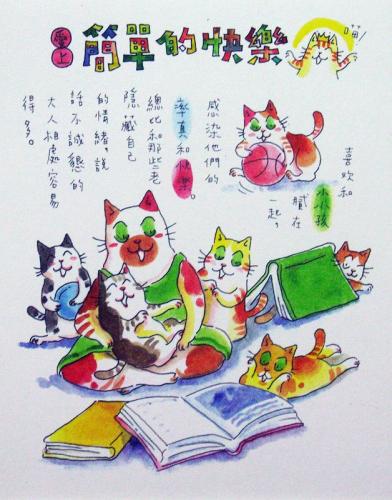 愛上簡單的快樂
喵!
喜歡和
小小孩膩在
一起。
感染他們的
率真和快樂。
總比和那些老
隱藏自己
的情緒。說
話不誠懇的
大人相處容易
得多。